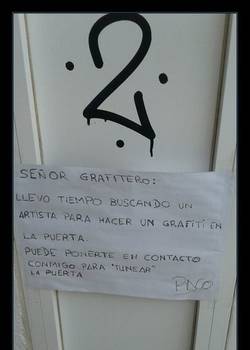 2
SEÑOR GRAFITERO:
LLEVO TIEMPO BUSCANDO UN
ARTISTA PARA HACER UN GRAFITI EN
LA PUERTA.
PUEDE PONERTE EN CONTACTO
CONMIGO PARA "TUNEAR"
LA PUERTA